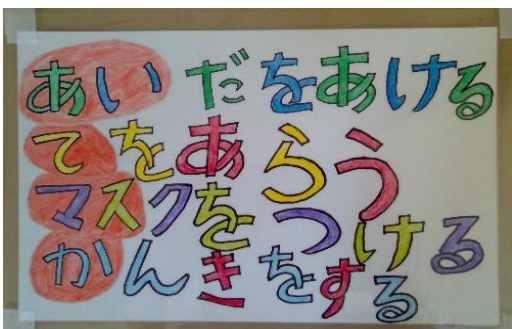 あいだをあける
てをあらう
マスクをつける
かんきをする